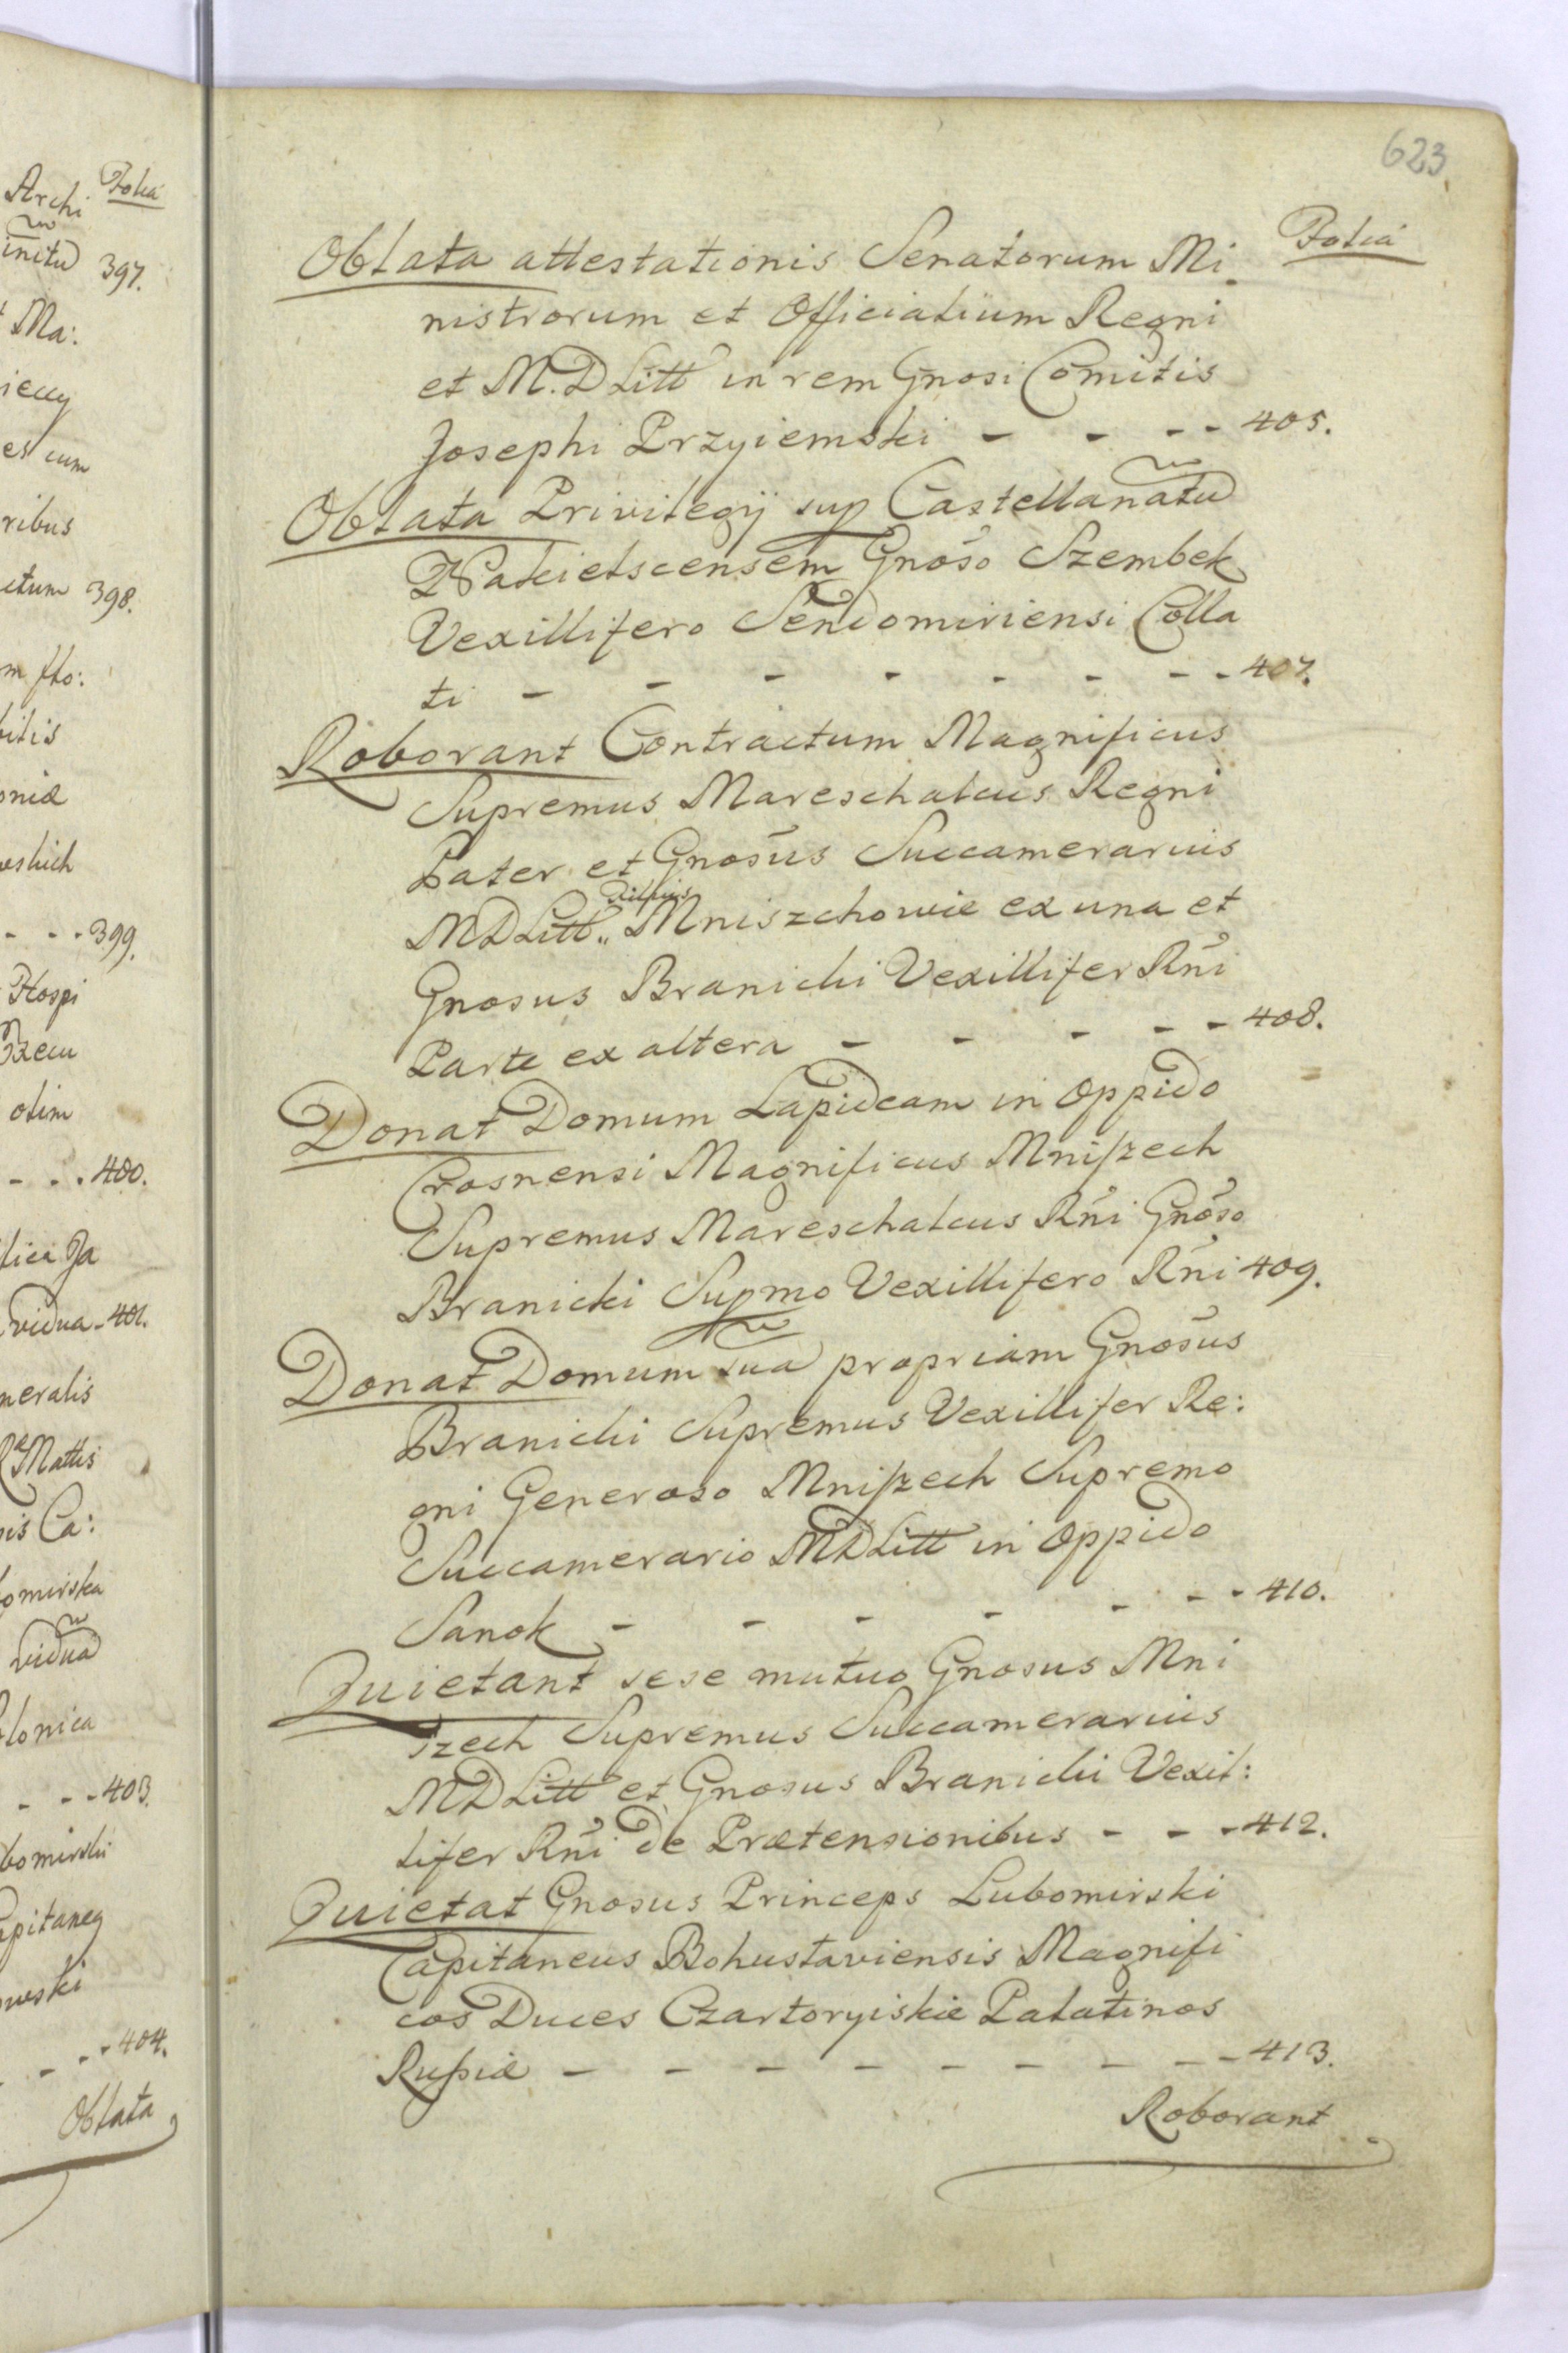 Archi Folia
initu 397.
Ma:
iecy
es cum
ribus
ctum 398.
m fto:
bitis
oniæ
- - - 399.
Hospi
olim
- - . 400.
lica Ja
vidua - 401.
neralis
Mattis
is Ca:
omirska
vidua
lonica
- - - 403.
bomirski
apitaneg
wski
- - - 404.
Oblata
623
Folia
Oblata attestationis Senatorum Mi
nistrorum et Officialium Regni
et M.D Litt in rem Gnosi Comitis
Josephi Przyiemski - - - - 405.
Oblata Privilegij sup Castellanatũ
Nakielscensem Gnoso Szembek
Vexillifero Sendomiriensi Colla
ti - - - - - - - - 407.
Roborant Contractum Magnificus
Supremus Mareschalcus Regni
Pater et Gnosus Succamerarius
MDLitt „ Filius Mniszchowie ex una et
Gnosus Branicki Vexillifer Rñi
Parte ex altera - - - - - 408.
Donat Domum Lapideam in Oppido
Crosnensi Magnificus Mniszech
Supremus Mareschalcus Rñi Gnoso
Branicki Supmo Vexillifero Rñi 409.
Donat Domum suã propriam Gnosus
Branicki Supremus Vexillifer Re:
gni Generoso Mniszech Supremo
Succamerario MDLitt in Oppido
Sanok - - - - - - - 410.
Quietant sese mutuo Gnosus Mni
szech Supremus Succamerarius
MDLitt et Gnosus Branicki Vexil:
lifer Rñi de Prætensionibus - - - 412.
Quietat Gnosus Princeps Lubomirski
Capitaneus Bohuslaviensis Magnifi
cos Duces Czartoryiskie Palatinos
Russiæ - - - - - - - - - 413.
Roborant